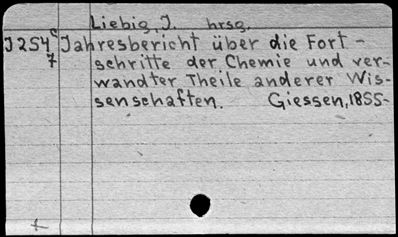 Liebig, J. hrsg.
J254c Jahresbericht über die Fort-
7 schritte der Chemie und ver-
wandter Theile anderer Wis-
senschaften. Giessen, 1855-